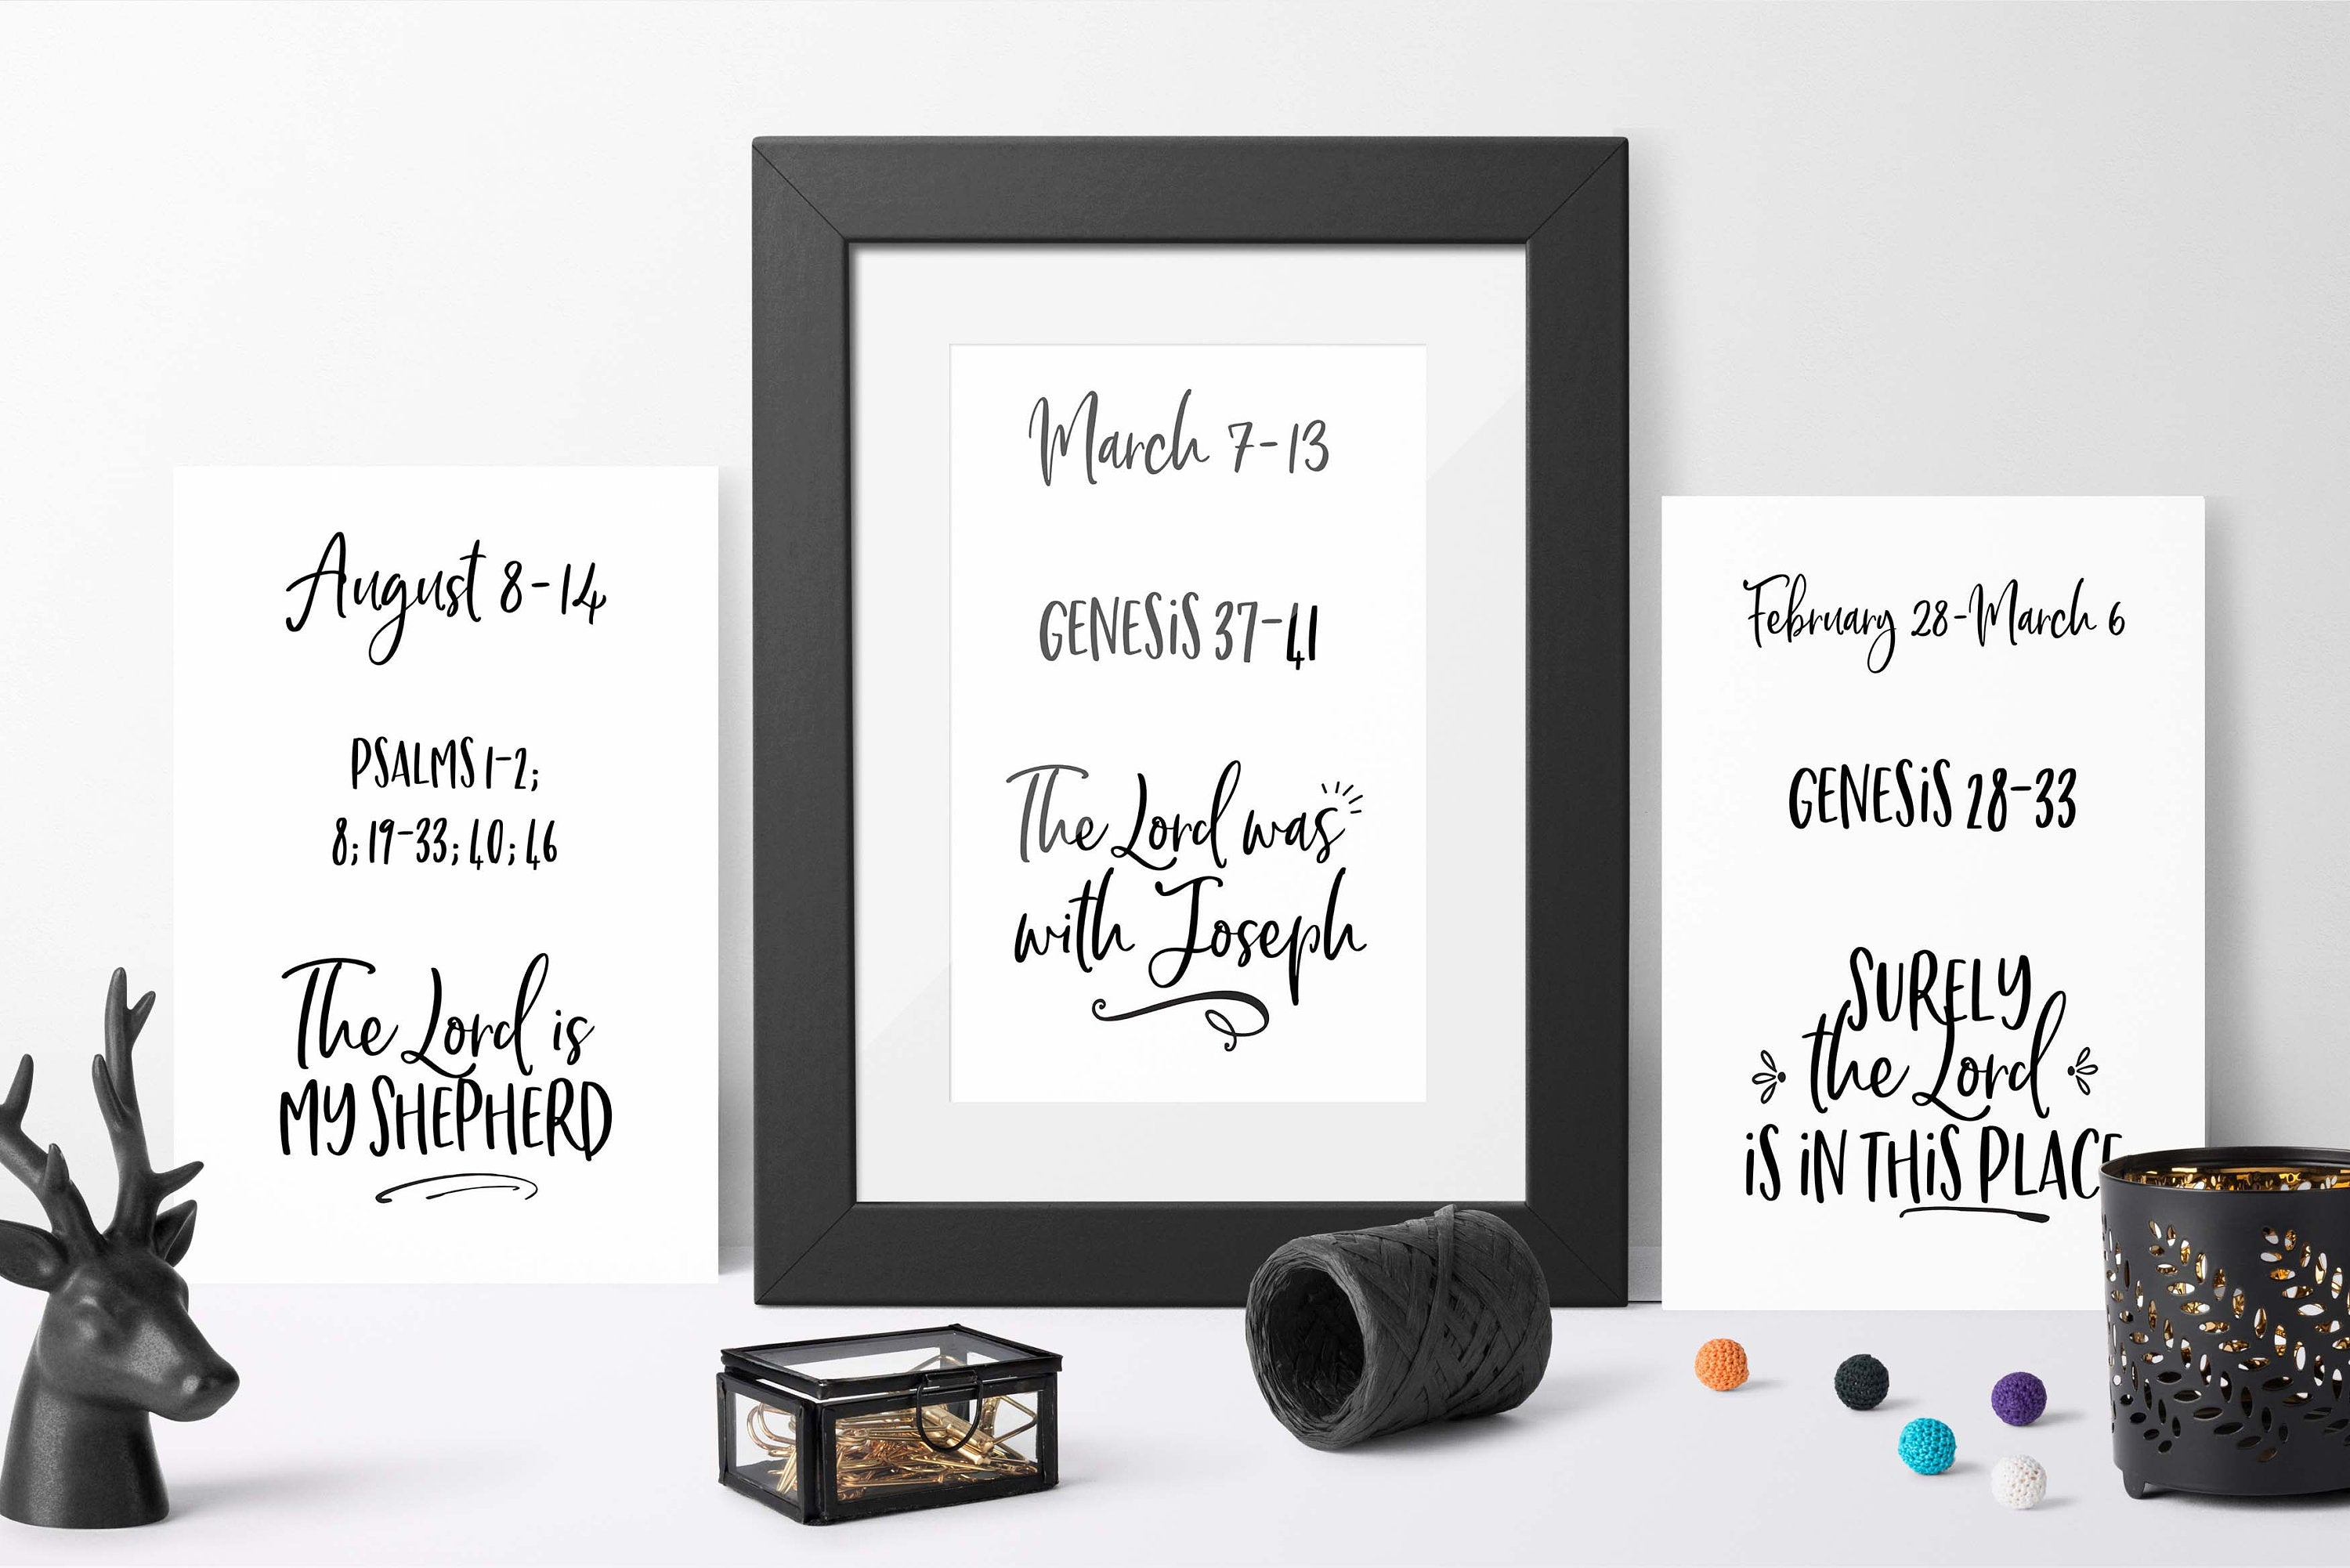 August 8-14
PSALMS 1-2;
8; 19-33; 40; 46
The Lord is
MY SHEPHERD
March 7-13
GENESiS 37-41
The Lord was
with Joseph
February 28-March 6
GENESiS 28-33
SURELY
the Lord
iS iN THiS PLACE